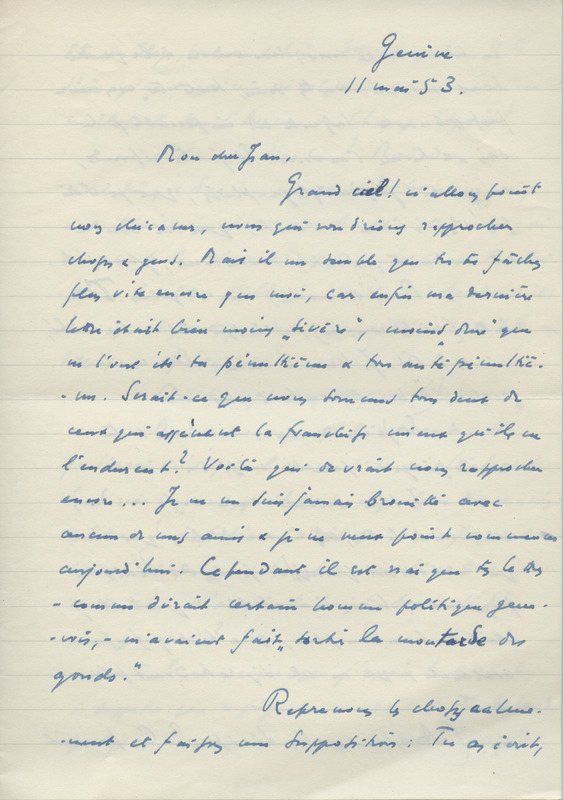 Genève
11 mai 53.
Mon cher Jean,
Grand ciel! n'allons point
nous chicaner, nous qui voudrions rapprocher
choses & gens. Mais il me semble que tu te fâches
plus vite encore que moi, car enfin ma dernière
lettre était bien moins „sévère", moins „dure" que
ne l'ont été ta pénultième & ton antépénultiè-
-me. Serait-ce que nous sommes tous deux de
ceux qui assènent la franchise mieux qu'ils ne
l'endurent? Voilà qui devrait nous rapprocher
encore... Je ne me suis jamais brouillé avec
aucun de mes amis & je ne veux point commencer
aujourd'hui. Cependant il est vrai que tes lettres
- comme dirait certain homme politique gene-
-vois, - m'avaient fait „sortir la moutarde des
gonds."
Reprenons les choses calme-
-ment et faisons une supposition: Tu as écrit,